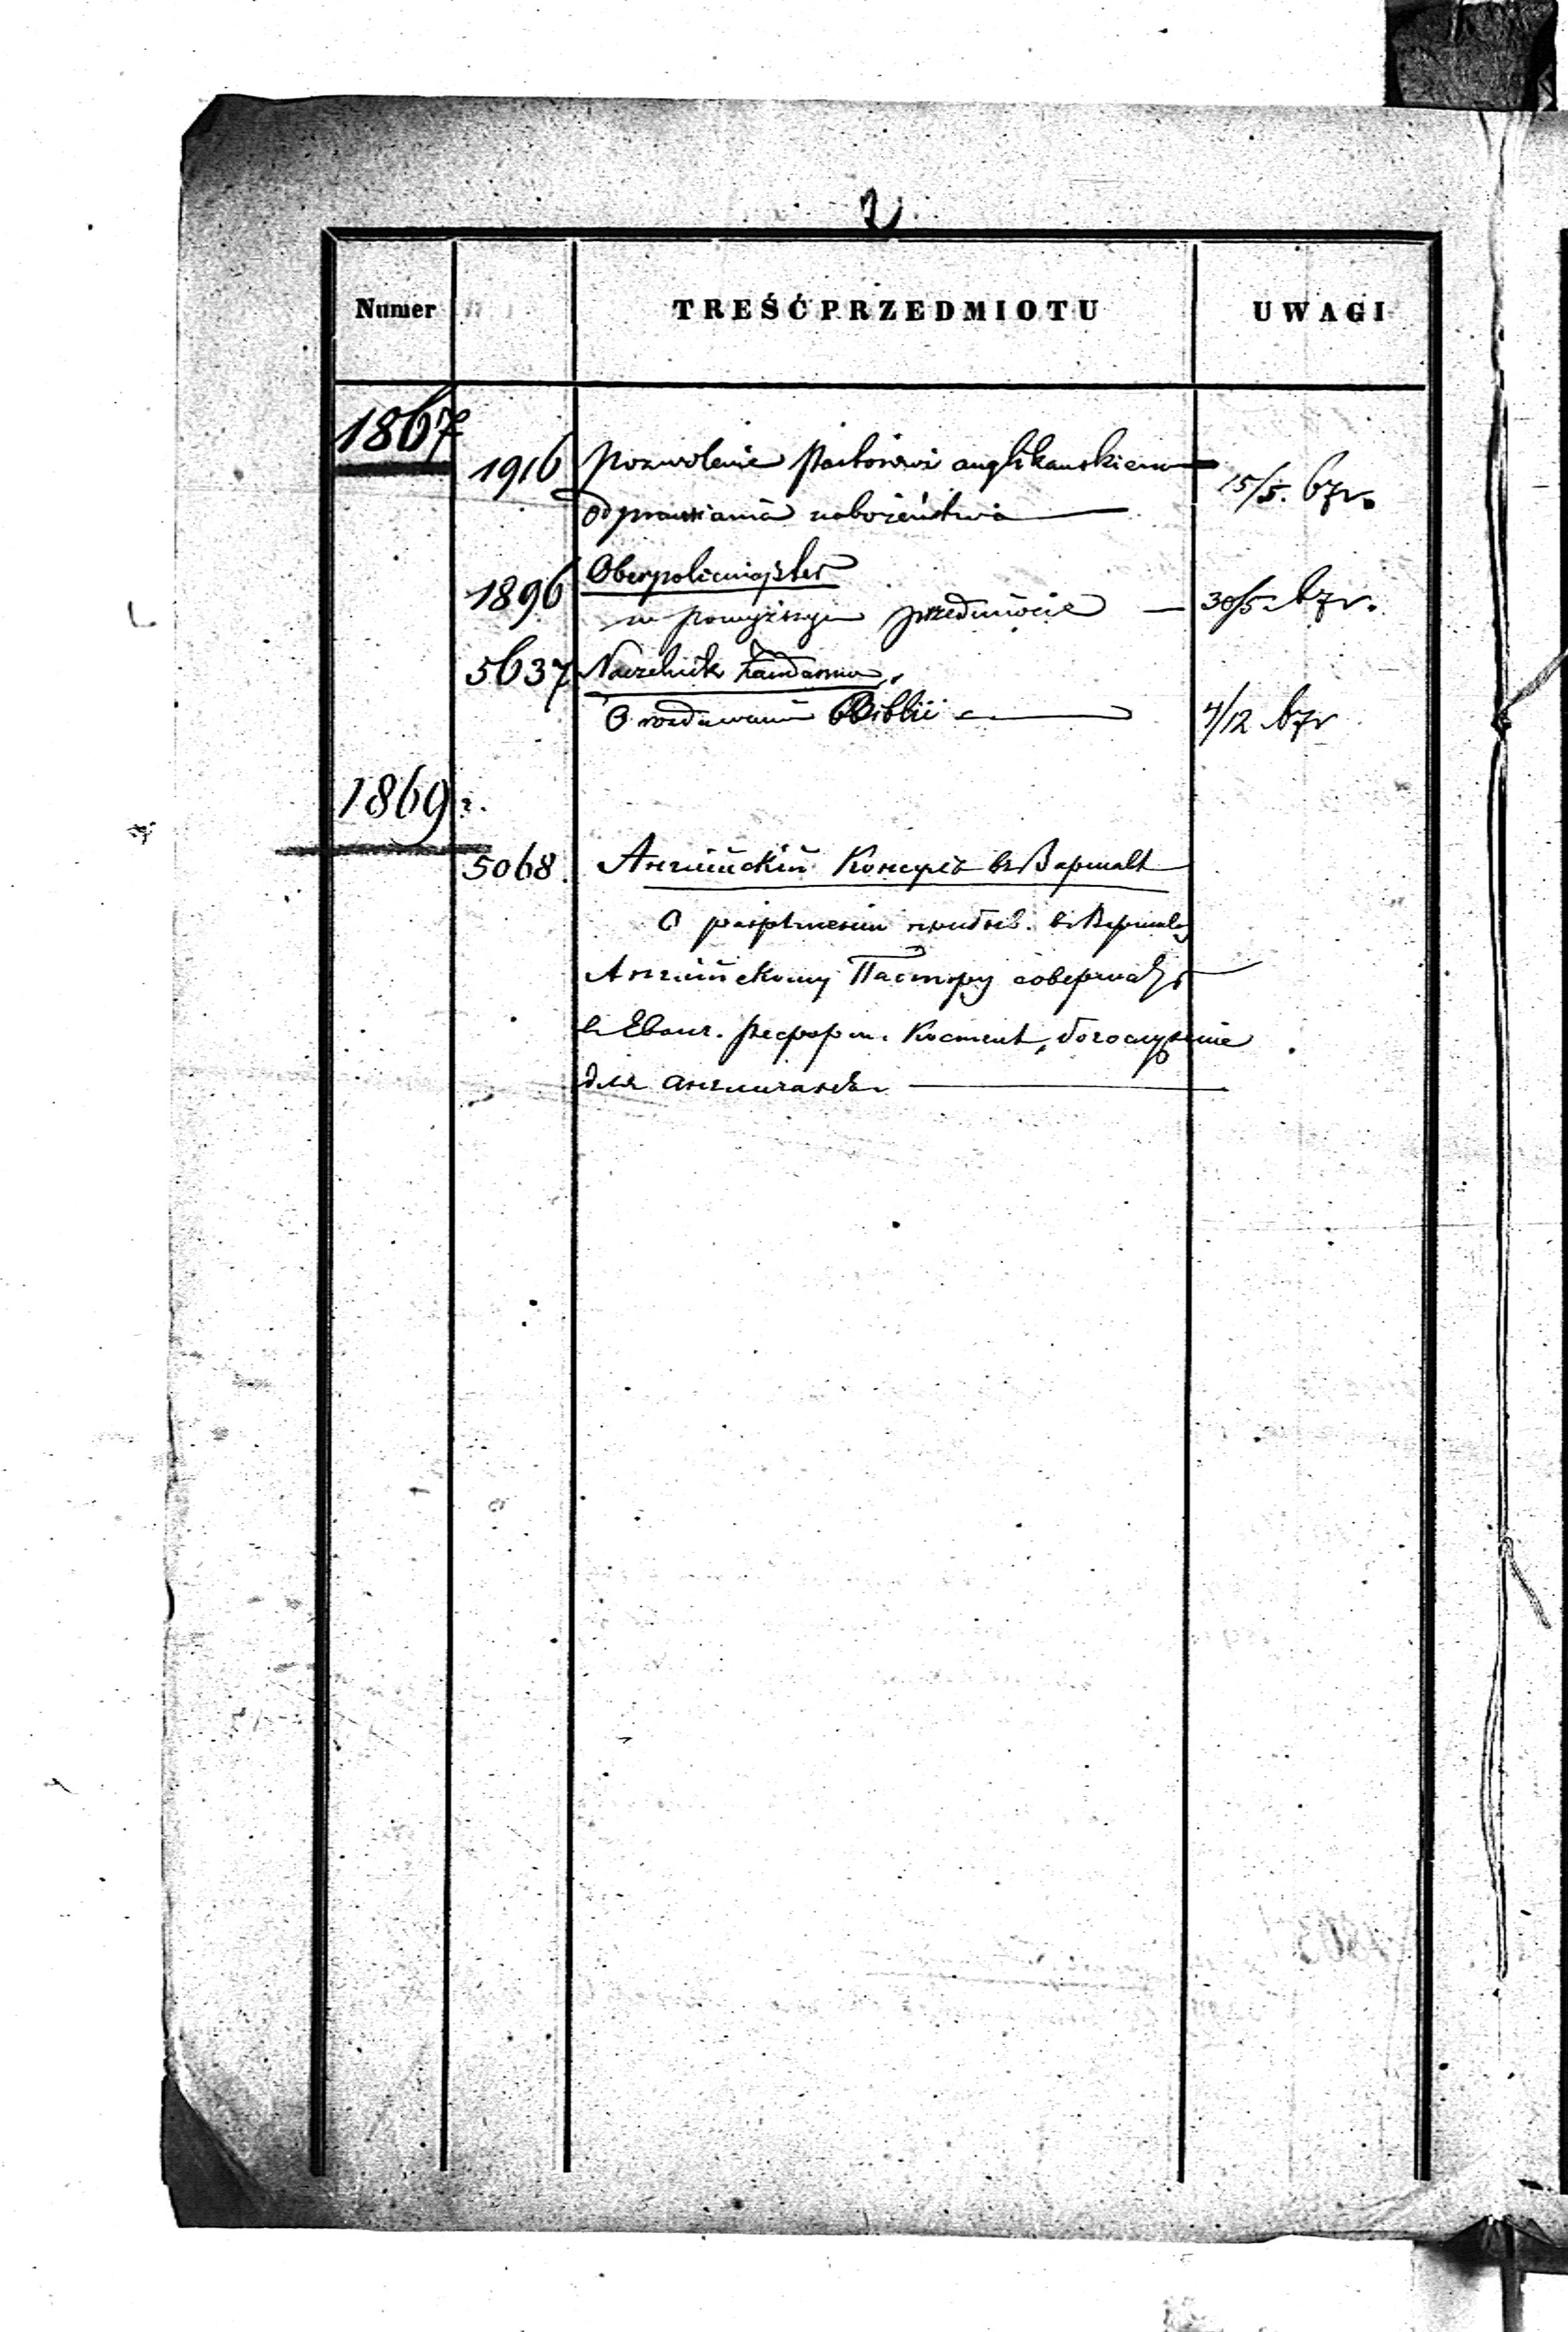 2
Numer TREŚĆ PRZEDMIOTU UWAGI
1867
1916 Pozwolenie Pastorowi anglikańskiemu 15/5. 67r.
odprawiania nabożeństwa
1896 Oberpolicmajster
w powyższym przedmiocie 30/5. 67r.
5637 Naczelnik Żandarmów
O rozdawaniu Biblii 4/12 67r
1869 r.
5068. Английскій Консулъ въ Варшавѣ
О разрѣшеніи прибыв. въ Варшаву
Английскому Пастору совершать
въ Еванг. Реформ. Костелѣ, богослуженіе
для англичанъ